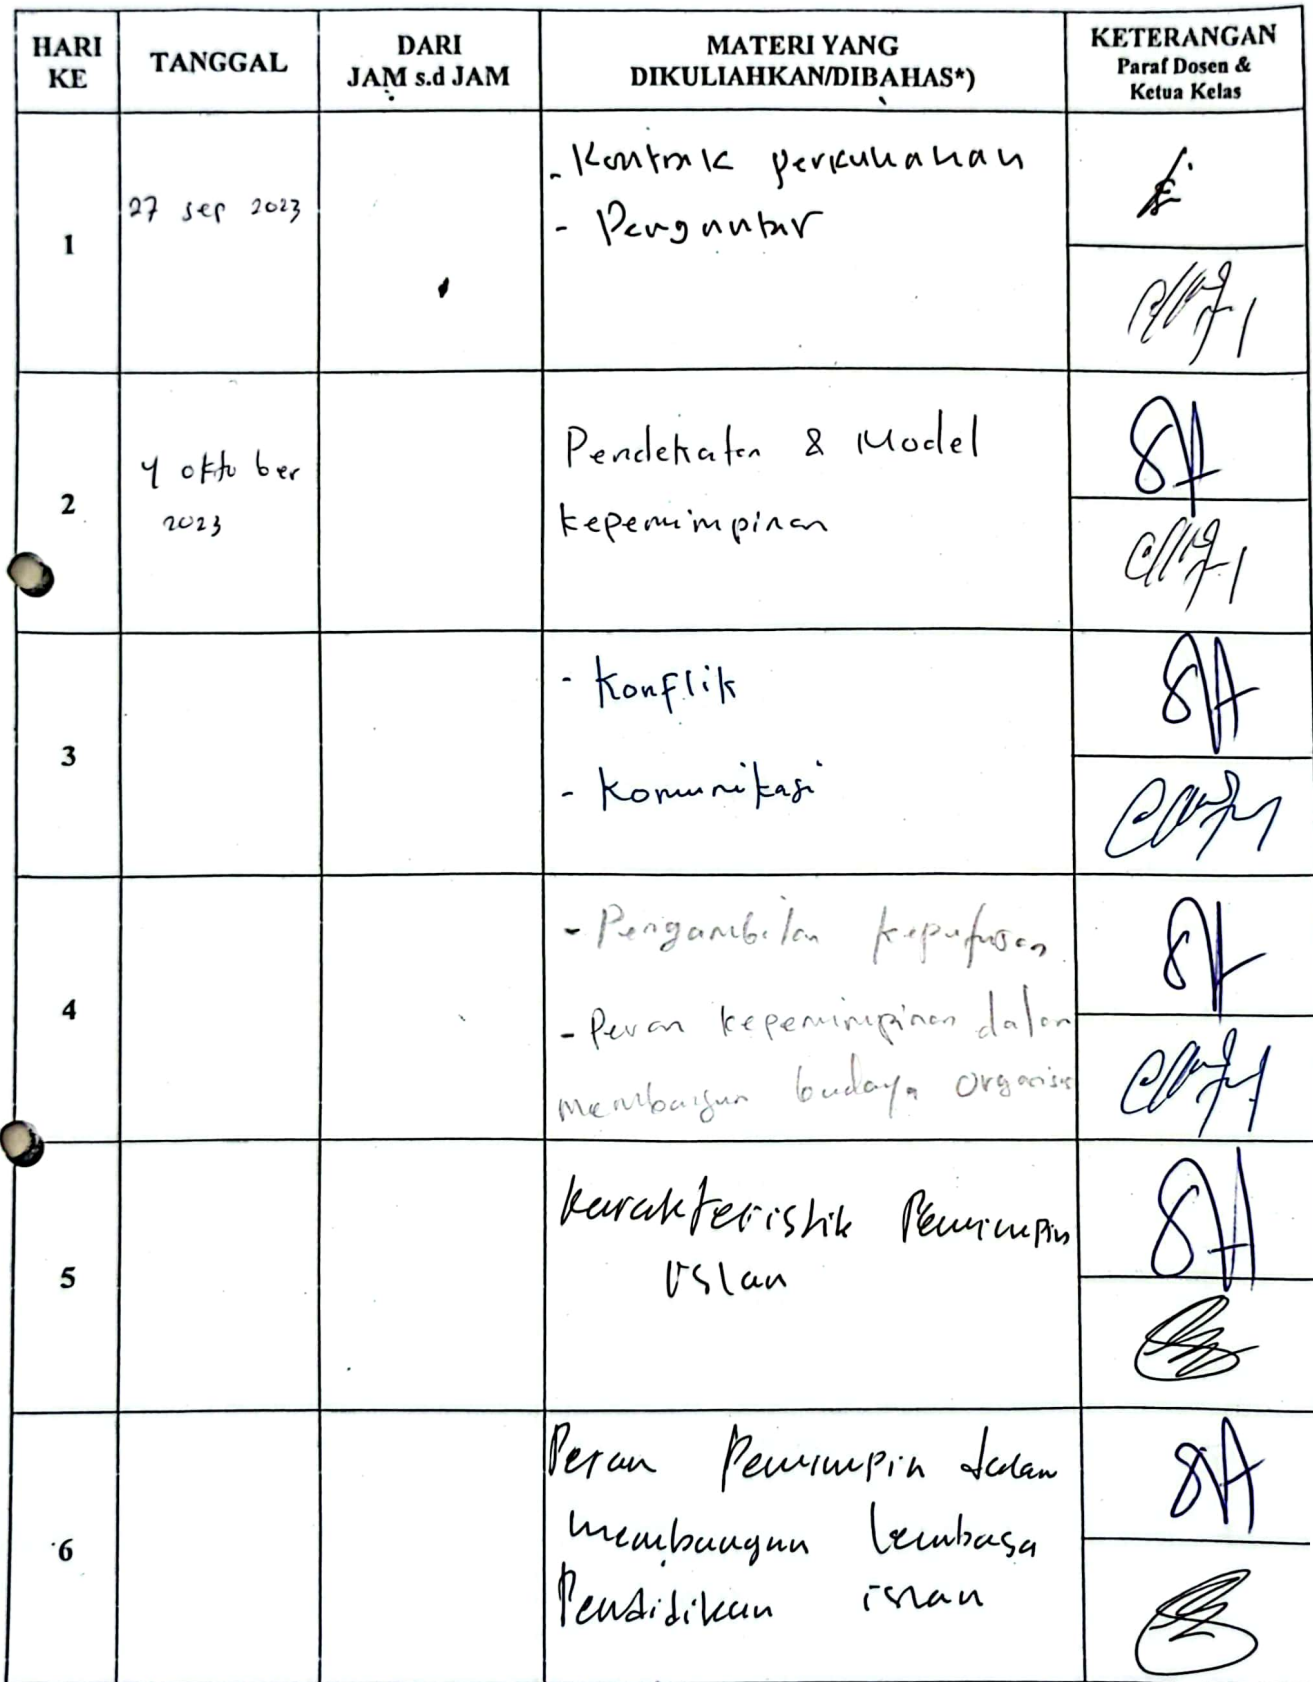 HARI KE
TANGGAL
DARI
JAM s.d JAM
MATERI YANG
DIKULIAHKAN/DIBAHAS*)
KETERANGAN
Paraf Dosen &
Ketua Kelas
1
27 sep 2023
- Kontrak perkuliahan
- Pengantar
2
4 oktober
2023
Pendekatan & Model
kepemimpinan
3
- Konflik
- Komunikasi
4
- Pengambilan keputusan
- Peran kepemimpinan dalam
membangun budaya organisasi
5
karakteristik Pemimpin
Islam
6
Peran Pemimpin dalam
membangun lembaga
Pendidikan islam